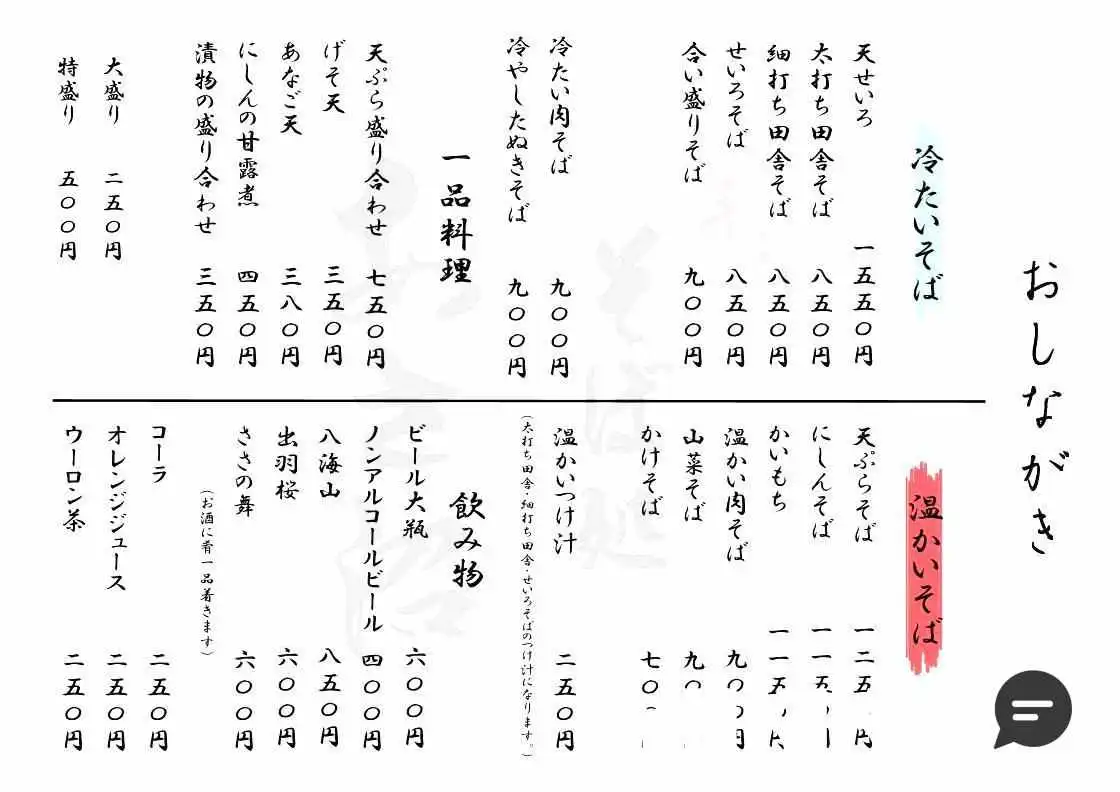 おしながき
冷たいそば
天せいろ 一五五〇円
太打ち田舎そば 八五〇円
細打ち田舎そば 八五〇円
せいろそば 八五〇円
合い盛りそば 九〇〇円
冷たい肉そば 九〇〇円
冷やしたぬきそば 九〇〇円
一品料理
天ぷら盛り合わせ 七五〇円
げそ天 三五〇円
あなご天 三八〇円
にしんの甘露煮 四五〇円
漬物の盛り合わせ 三五〇円
大盛り 二五〇円
特盛り 五〇〇円
温かいそば
天ぷらそば 一二五
にしんそば 一一五
かいもち 一一五
温かい肉そば 九〇〇円
山菜そば 九〇
かけそば 七〇
温かいつけ汁 二五〇円
(太打ち田舎・細打ち田舎・せいろそばのつけ汁になります。)
飲み物
ビール大瓶 六〇〇円
ノンアルコールビール 四〇〇円
八海山 八五〇円
出羽桜 六〇〇円
ささの舞 六〇〇円
(お酒に肴一品着きます)
コーラ 二五〇円
オレンジジュース 二五〇円
ウーロン茶 二五〇円
そば処